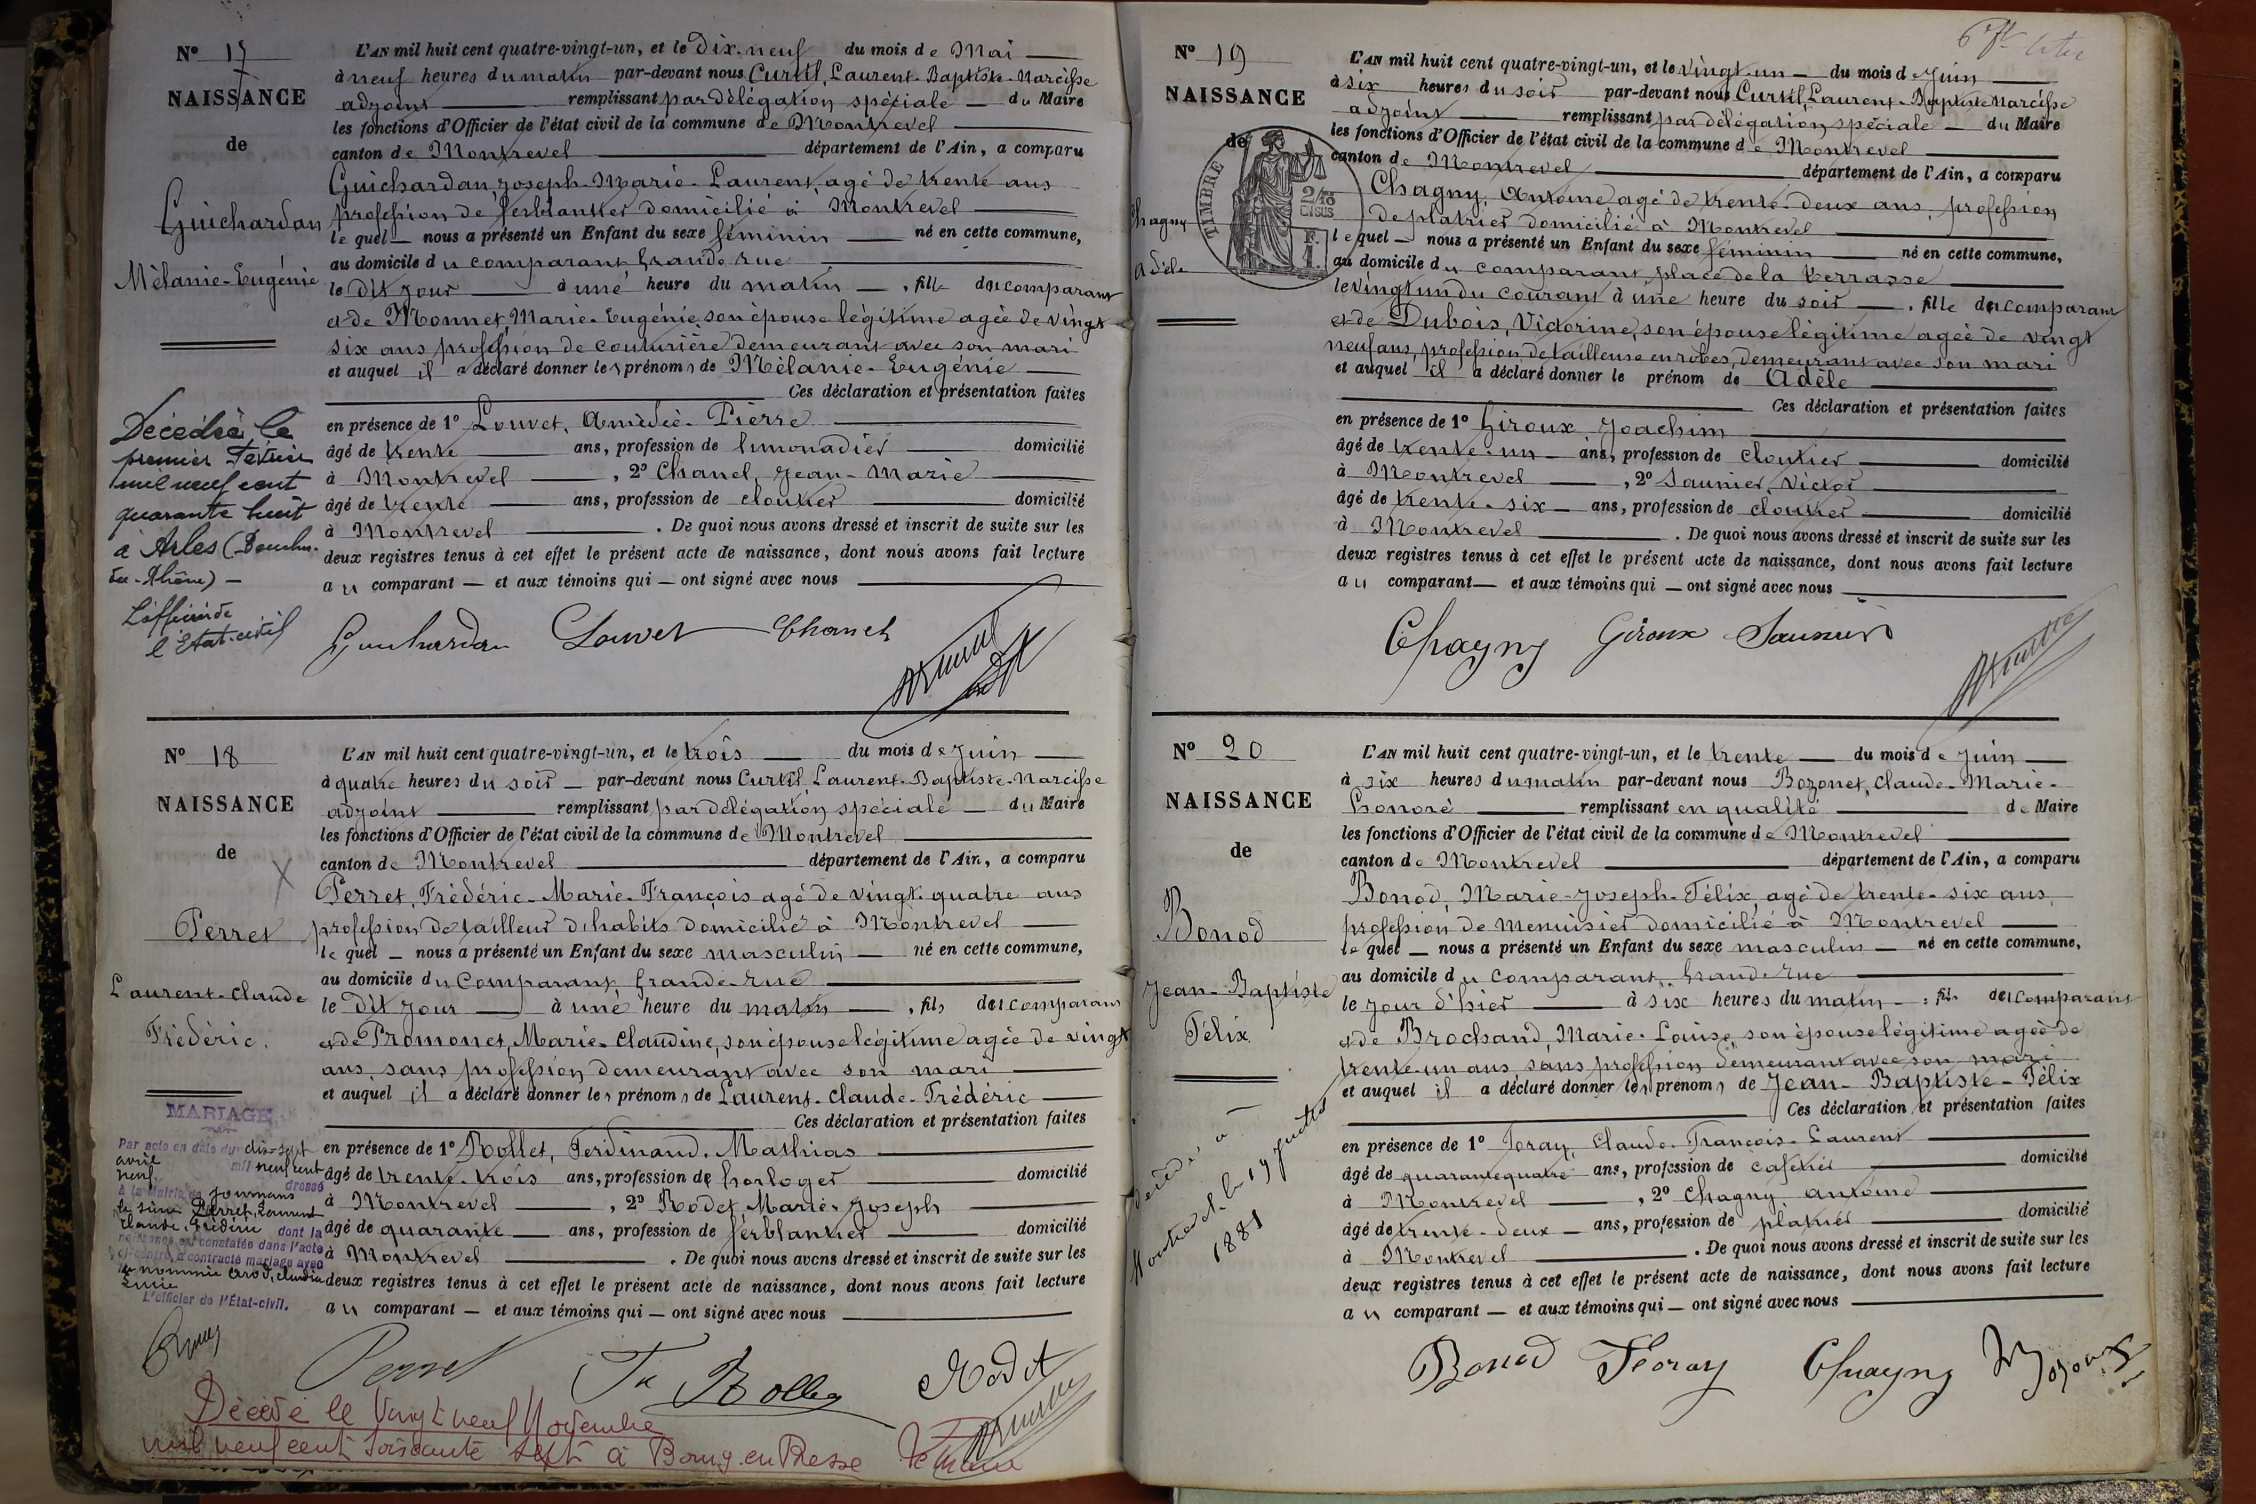 N° 17
NAISSANCE
de
Guichardan
Mélanie-Eugénie
L'AN mil huit cent quatre-vingt-un, et le dix-neuf du mois de Mai
à neuf heures du matin par-devant nous Curtil, Laurent-Baptiste-Narcisse
adjoint remplissant par délégation spéciale du Maire
les fonctions d'Officier de l'état civil de la commune de Montrevel
canton de Montrevel département de l'Ain, a comparu
Guichardan, Joseph-Marie-Laurent, agé de trente ans
profession de ferblantier domicilié à Montrevel
le quel nous a présenté un Enfant du sexe féminin né en cette commune,
au domicile du comparant Grande rue
le dit jour à une heure du matin, fille du comparant
et de Monnet, Marie-Eugénie, son épouse légitime agée de vingt
six ans profession de couturière demeurant avec son mari
et auquel il a déclaré donner les prénoms de Mélanie-Eugénie
Ces déclaration et présentation faites
en présence de 1° Louvet, Amédée-Pierre
âgé de trente ans, profession de limonadier domicilié
à Montrevel, 2° Chanel, Jean-Marie
âgé de trente ans, profession de cloutier domicilié
à Montrevel. De quoi nous avons dressé et inscrit de suite sur les
deux registres tenus à cet effet le présent acte de naissance, dont nous avons fait lecture
au comparant et aux témoins qui ont signé avec nous
Guichardan Louvet Chanel
Décédée le
premier Février
mil neuf cent
quarante huit
à Arles (Bouches-
du-Rhône) —
L'officier de
l'Etat-civil
N° 18
NAISSANCE
de
Perret
Laurent-Claude
Frédéric.
L'AN mil huit cent quatre-vingt-un, et le trois du mois de Juin
à quatre heures du soir par-devant nous Curtil, Laurent-Baptiste-Narcisse
adjoint remplissant par délégation spéciale du Maire
les fonctions d'Officier de l'état civil de la commune de Montrevel
canton de Montrevel département de l'Ain, a comparu
Perret, Frédéric-Marie-François agé de vingt-quatre ans
profession de tailleur d'habits domicilié à Montrevel
le quel nous a présenté un Enfant du sexe masculin né en cette commune,
au domicile du Comparant, Grande rue
le dit jour à une heure du matin, fils du comparant
et de Promonet, Marie-Claudine, son épouse légitime agée de vingt
ans, sans profession demeurant avec son mari
et auquel il a déclaré donner les prénoms de Laurent-Claude-Frédéric
Ces déclaration et présentation faites
en présence de 1° Rollet, Ferdinand-Mathias
âgé de trente-trois ans, profession de horloger domicilié
à Montrevel, 2° Rodet, Marie-Joseph
âgé de quarante ans, profession de ferblantier domicilié
à Montrevel. De quoi nous avons dressé et inscrit de suite sur les
deux registres tenus à cet effet le présent acte de naissance, dont nous avons fait lecture
au comparant et aux témoins qui ont signé avec nous
MARIAGE
Par acte en date du dix-sept
avril mil neuf cent
neuf, dressé
à la Mairie de Journans
le sieur Perret, Laurent
Claude-Frédéric dont la
naissance est constatée dans l'acte
ci-contre, a contracté mariage avec
la nommée Brod, Claudia
Lucie
L'officier de l'État-civil.
Perret Rollet Rodet
Décédé le Vingt neuf Novembre
mil neuf cent soixante sept à Bourg-en-Bresse
N° 19
NAISSANCE
de
Chagny
Adèle
TIMBRE
2/10
EN SUS
L'AN mil huit cent quatre-vingt-un, et le vingt-un du mois de Juin
à six heures du soir par-devant nous Curtil, Laurent-Baptiste Narcisse
adjoint remplissant par délégation spéciale du Maire
les fonctions d'Officier de l'état civil de la commune de Montrevel
canton de Montrevel département de l'Ain, a comparu
Chagny, Antoine agé de trente-deux ans, profession
de platrier domicilié à Montrevel
le quel nous a présenté un Enfant du sexe féminin né en cette commune,
au domicile du comparant, place de la terrasse
le vingt un du courant à une heure du soir, fille du comparant
et de Dubois, Victorine, son épouse légitime agée de vingt
neuf ans, profession de tailleuse en robes, demeurant avec son mari
et auquel il a déclaré donner le prénom de Adèle
Ces déclaration et présentation faites
en présence de 1° Giroux, Joachim
âgé de trente-un ans, profession de cloutier domicilié
à Montrevel, 2° Saunier, Victor
âgé de trente-six ans, profession de cloutier domicilié
à Montrevel. De quoi nous avons dressé et inscrit de suite sur les
deux registres tenus à cet effet le présent acte de naissance, dont nous avons fait lecture
au comparant et aux témoins qui ont signé avec nous
Chagny Giroux Saunier
N° 20
NAISSANCE
de
Bonod
Jean-Baptiste
Félix
L'AN mil huit cent quatre-vingt-un, et le trente du mois de Juin
à six heures du matin par-devant nous Bozonet, Claude-Marie-
Honoré remplissant en qualité de Maire
les fonctions d'Officier de l'état civil de la commune de Montrevel
canton de Montrevel département de l'Ain, a comparu
Bonod, Marie-Joseph-Félix, agé de trente-six ans,
profession de menuisier domicilié à Montrevel
le quel nous a présenté un Enfant du sexe masculin né en cette commune,
au domicile du Comparant, Grande rue
le jour d'hier à six heures du matin, fils du comparant
et de Brochand, Marie-Louise, son épouse légitime agée de
trente-un ans, sans profession demeurant avec son mari
et auquel il a déclaré donner les prénoms de Jean-Baptiste-Félix
Ces déclaration et présentation faites
en présence de 1° Joray, Claude-François-Laurent
âgé de quarante quatre ans, profession de cafetier domicilié
à Montrevel, 2° Chagny, Antoine
âgé de trente-deux ans, profession de platrier domicilié
à Montrevel. De quoi nous avons dressé et inscrit de suite sur les
deux registres tenus à cet effet le présent acte de naissance, dont nous avons fait lecture
au comparant et aux témoins qui ont signé avec nous
Décédé à
Montrevel le 17 Juillet
1881
Bonod Joray Chagny